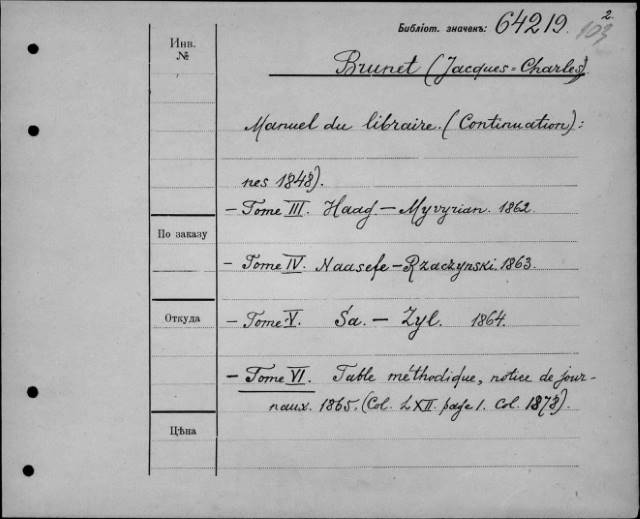 2.
Библіот. значекъ: 64219. 103
Инв.
№
Brunet (Jacques-Charles).
Manuel du libraire. (Continuation):
nes 1848).
- Tome III. Haag. - Myvyrian. 1862.
По заказу
- Tome IV. Naasefe - Rzaczynski. 1863.
Откуда
- Tome V. Sa. - Zyl. 1864.
- Tome VI. Table méthodique, notice de jour-
naux. 1865. (Col. LXII. page 1. Col. 1878).
Цѣна